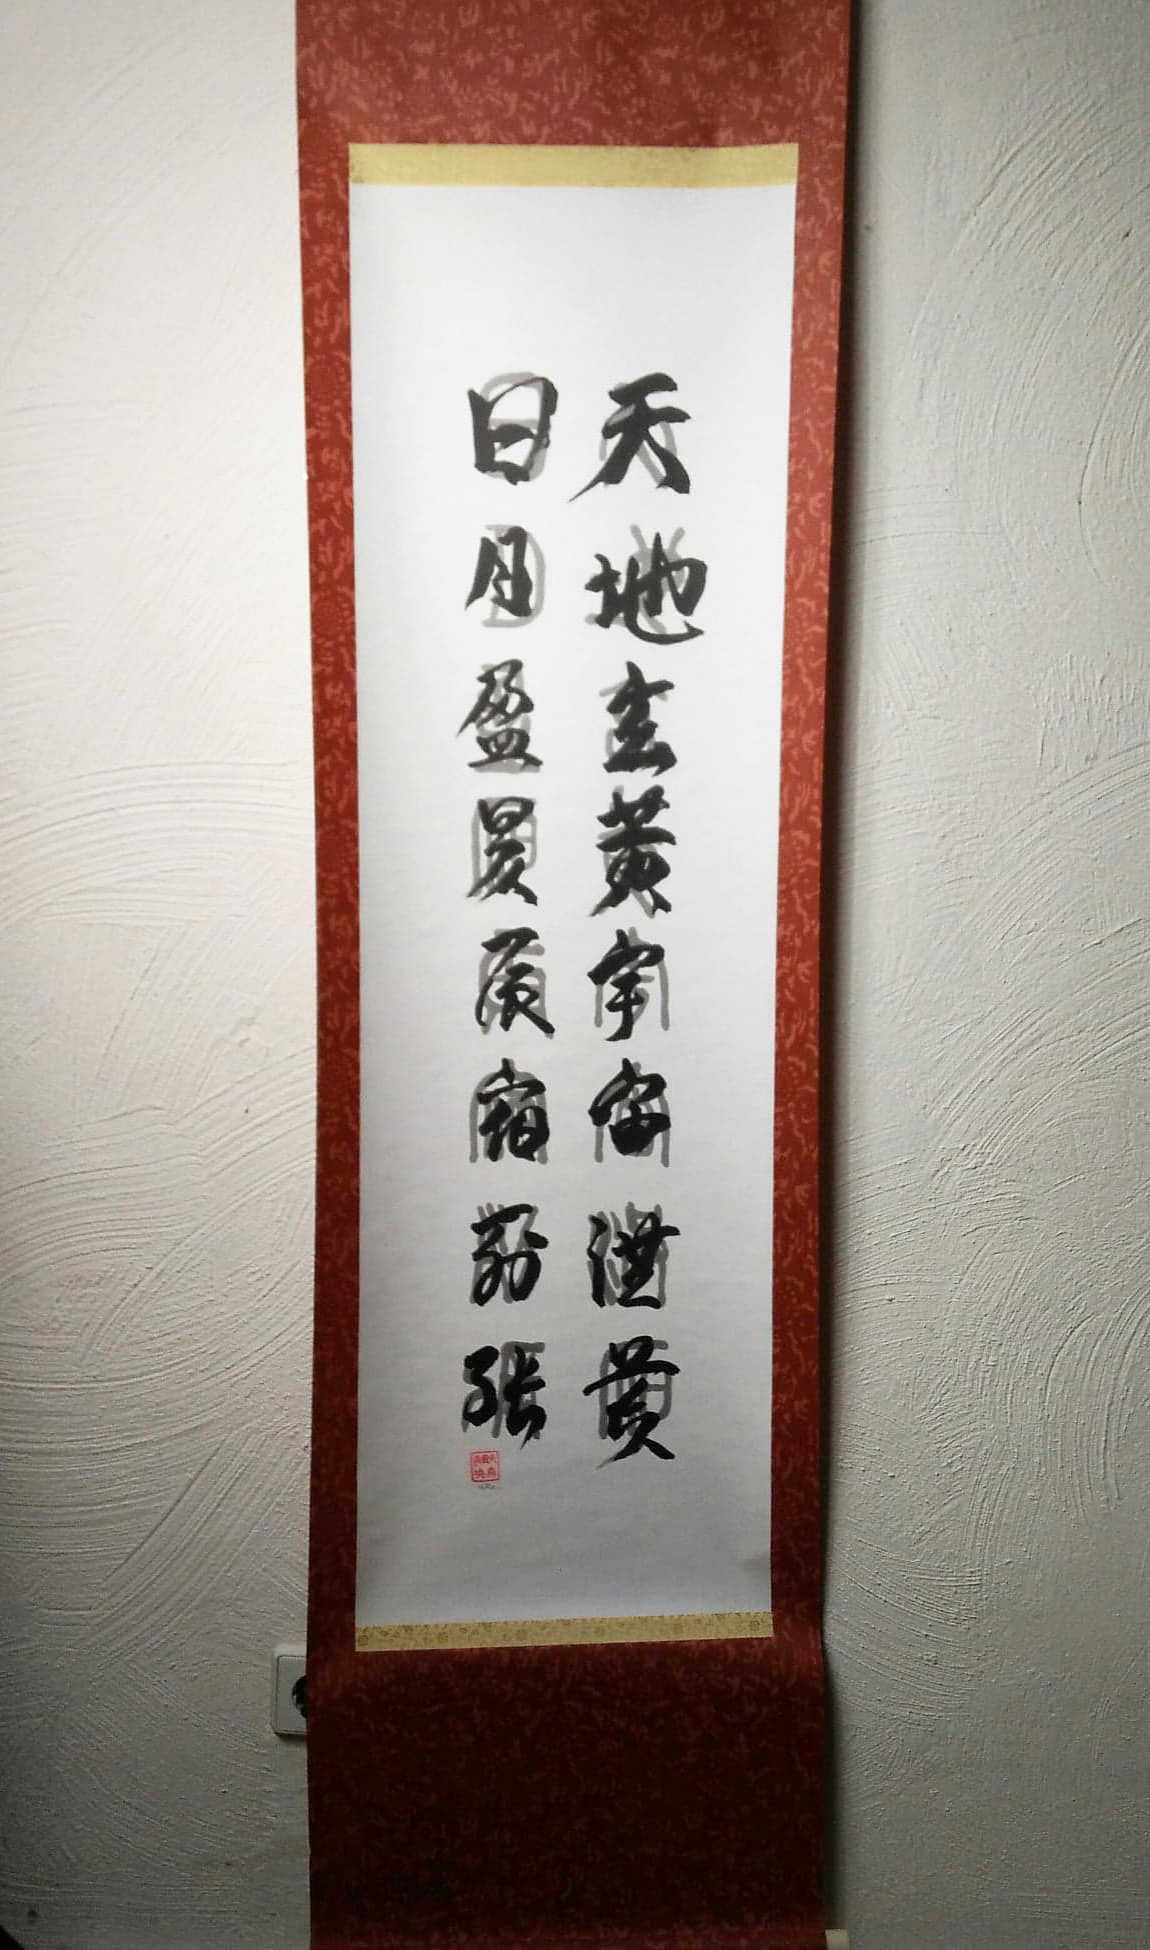 天地玄黄宇宙洪荒
日月盈昃辰宿列張